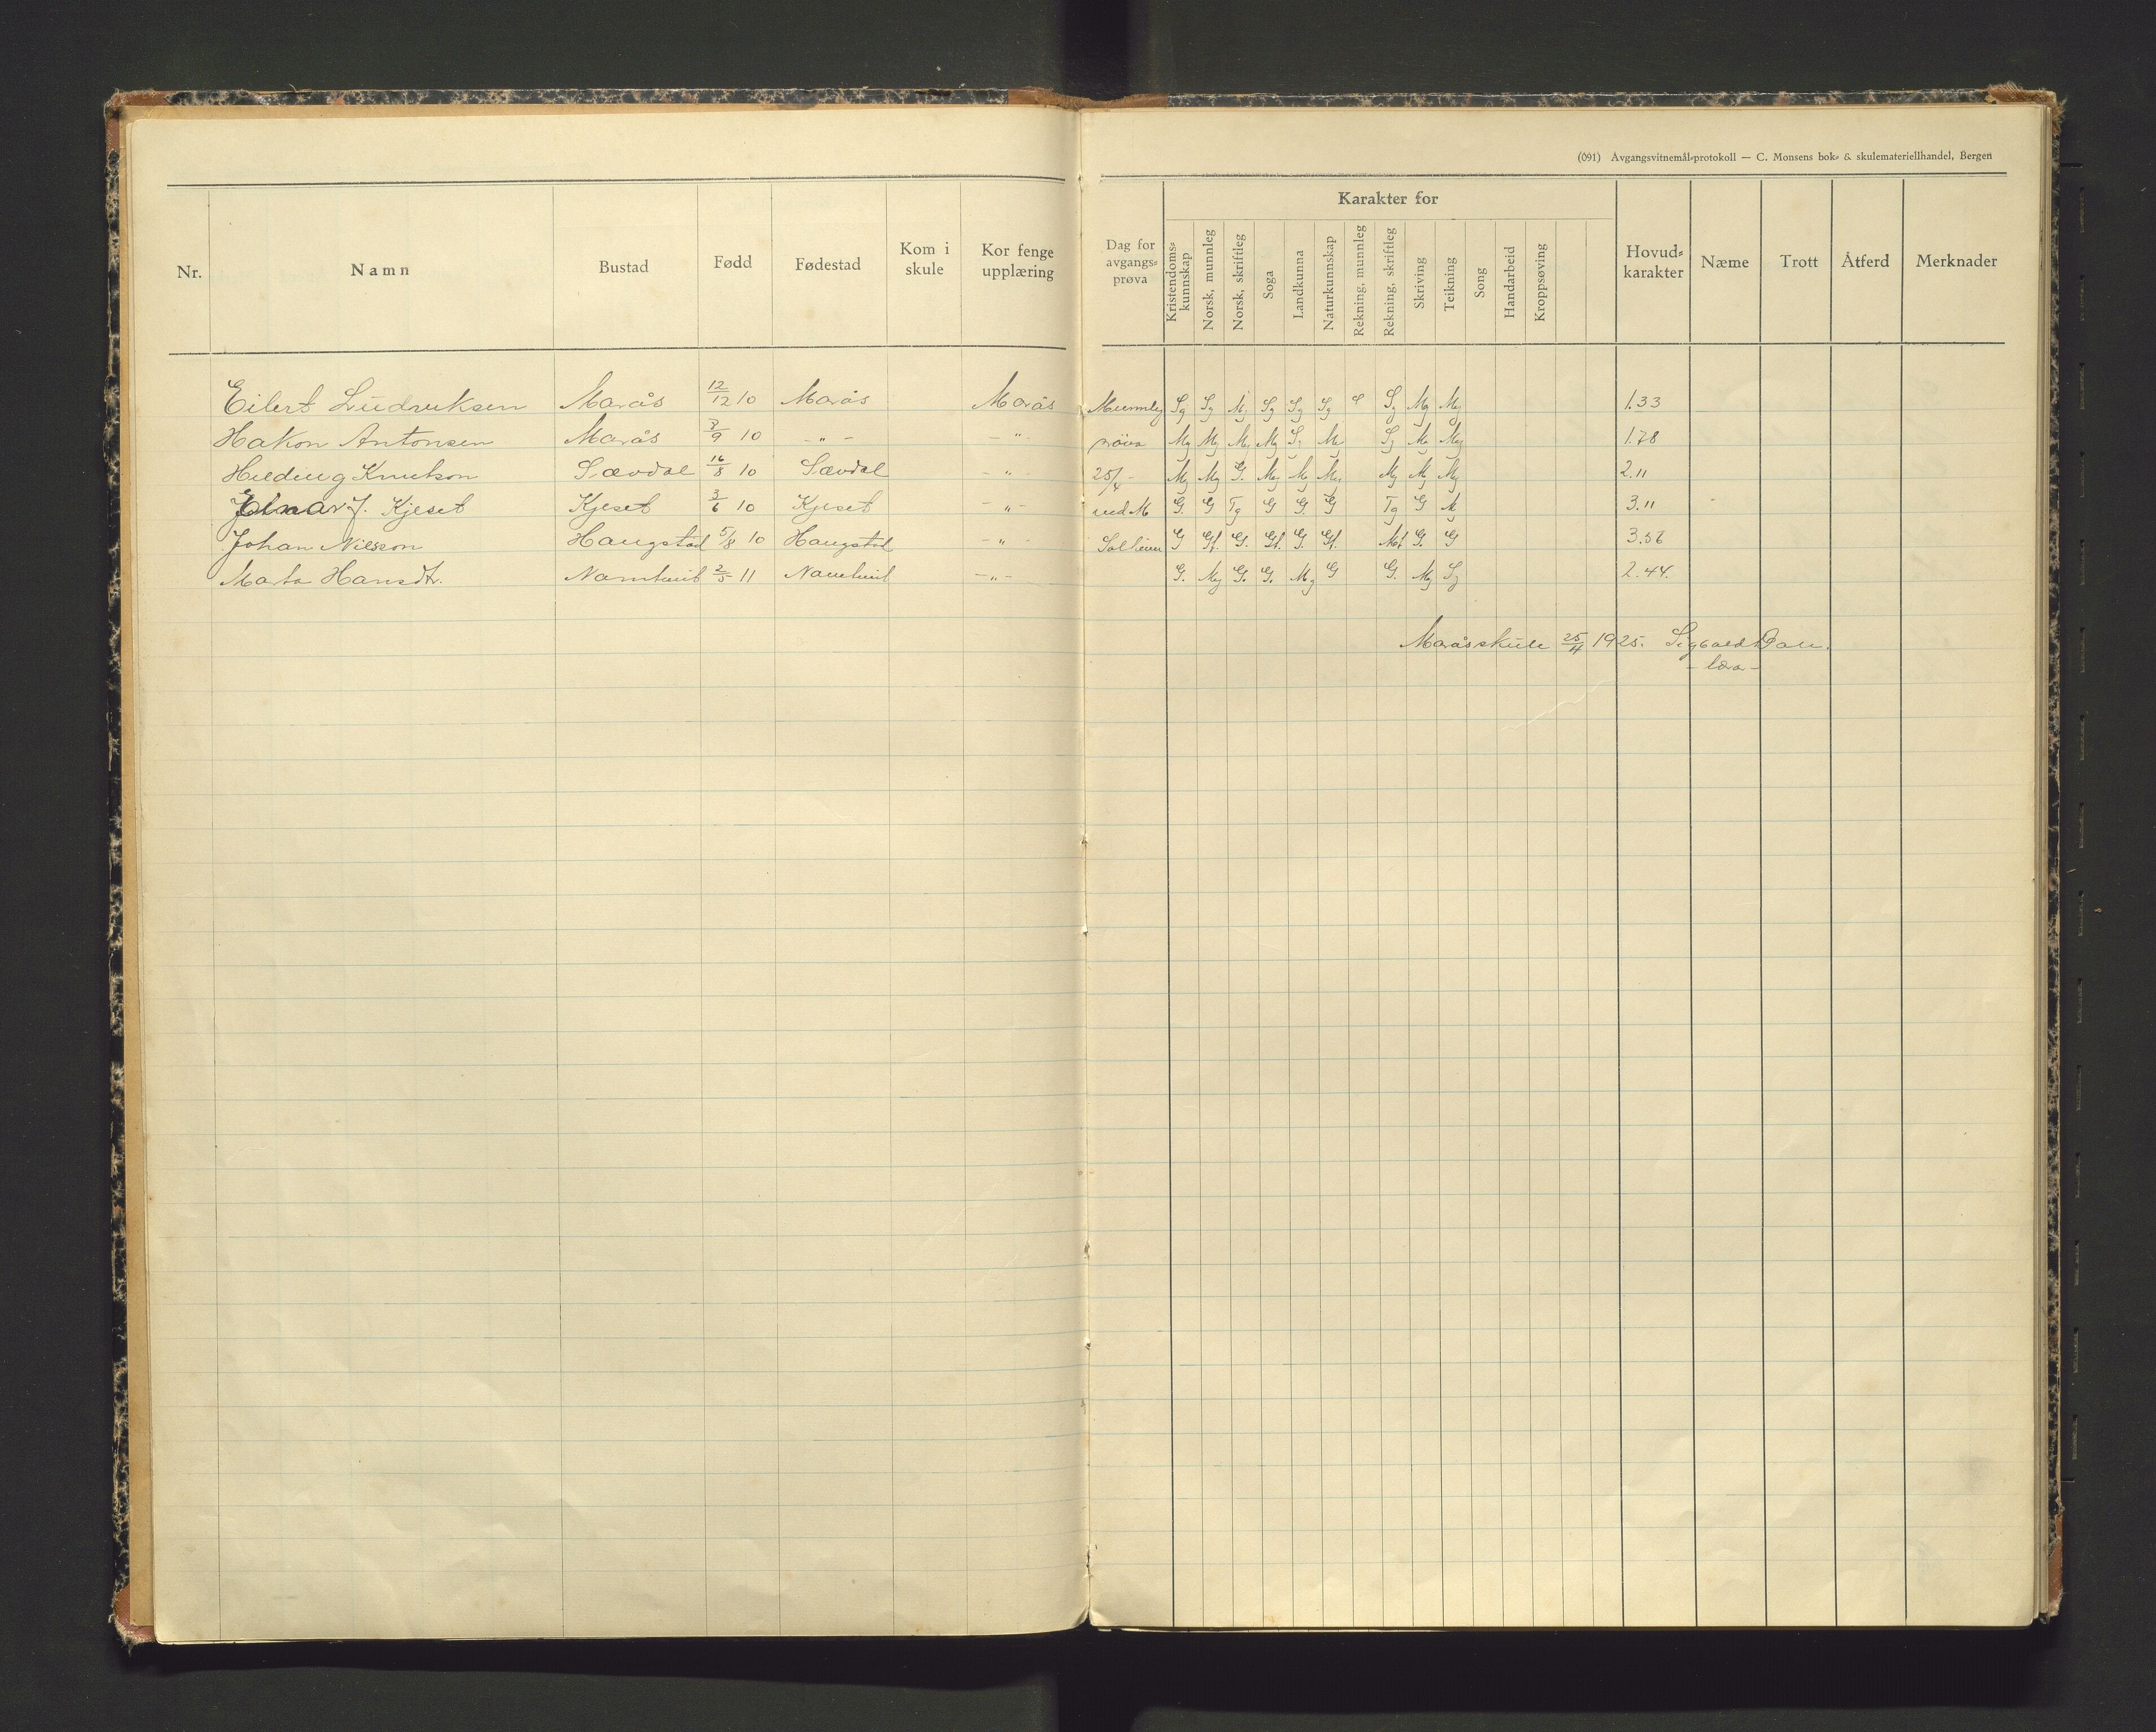 (691) Avgangsvitnemål-protokoll — C. Monsens bok- & skulemateriellhandel, Bergen
Karakter for
Nr. Namn Bustad Fødd Fødestad Kom i skule Kor fenge upplæring Dag for avgangs-prøva Kristendoms-kunnskap Norsk, munnleg Norsk, skriftleg Soga Landkunna Naturkunnskap Rekning, munnleg Rekning, skriftleg Skriving Teikning Song Handarbeid Kroppsøving Hovud-karakter Næme Trott Åtferd Merknader
Eilert Ludvuksen Marås 12/12 10 Marås Marås Munnleg Sg Sg M Sg Sg Sg Sg Mg Mg 1.33
Hakon Antonsen Marås 3/9 10 - " - - " - pröva Mg Mg Mg Mg Sg Mg Sg Mg Mg 1.78
Hilding Knutson Sævdal 16/8 10 Sævdal - " - 25/4 - Mg Mg G. Mg Mg Mg Mg Mg Mg 2.11
J. Kjeset Kjeset 3/6 10 Kjeset - " - ved M G. G Tg G G. G Tg G M 3.11
Johan Nilsson Haugstad 5/8 10 Haugstad - " - Solheim G Gt. G. Gt. G. Gt. Mt G. G 3.56
Marta Hansdtr. 2/5 11 - " - G. Mg G. G. Mg G G. Mg Sg 2.44.
Marås skule 25/4 1925. Sigvald
- lærar -